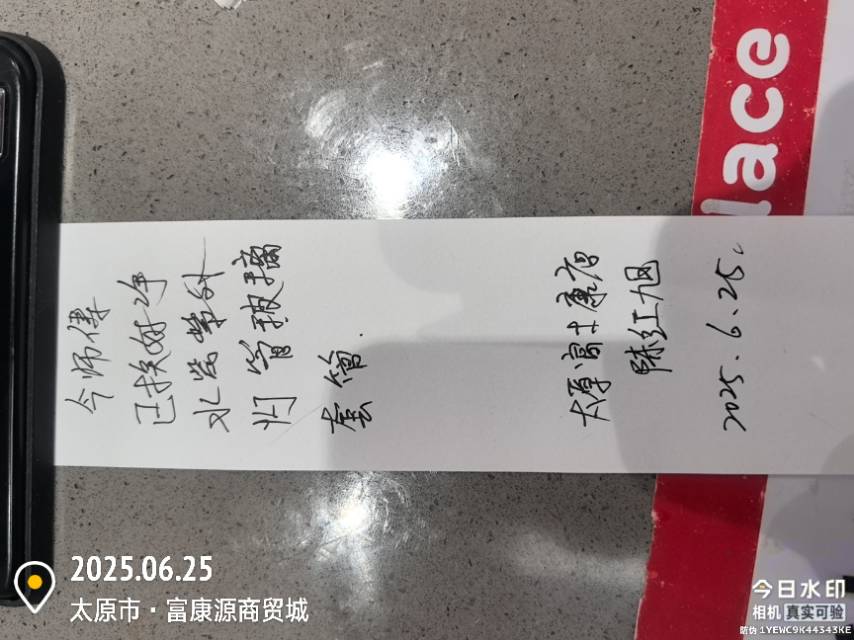 今师傅
已换好净
水器紫外
灯管玻璃
套筒.
太原富士康店
陈红旭
2025.6.25.
lace
2025.06.25
太原市·富康源商贸城
今日水印
相机 真实可验
防伪 1YEWC9K44343KE